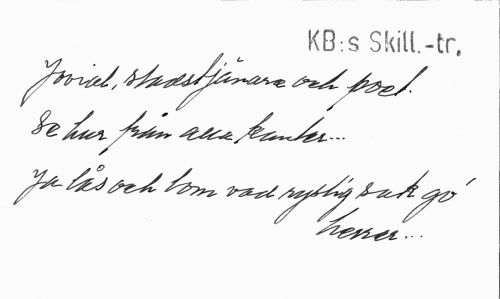 KB:s Skill.-tr.
Jovial, stadstjänare och poet.
Se hur från alla kanter...
Ja lås och bom vad ryslig sak gó
herrar...